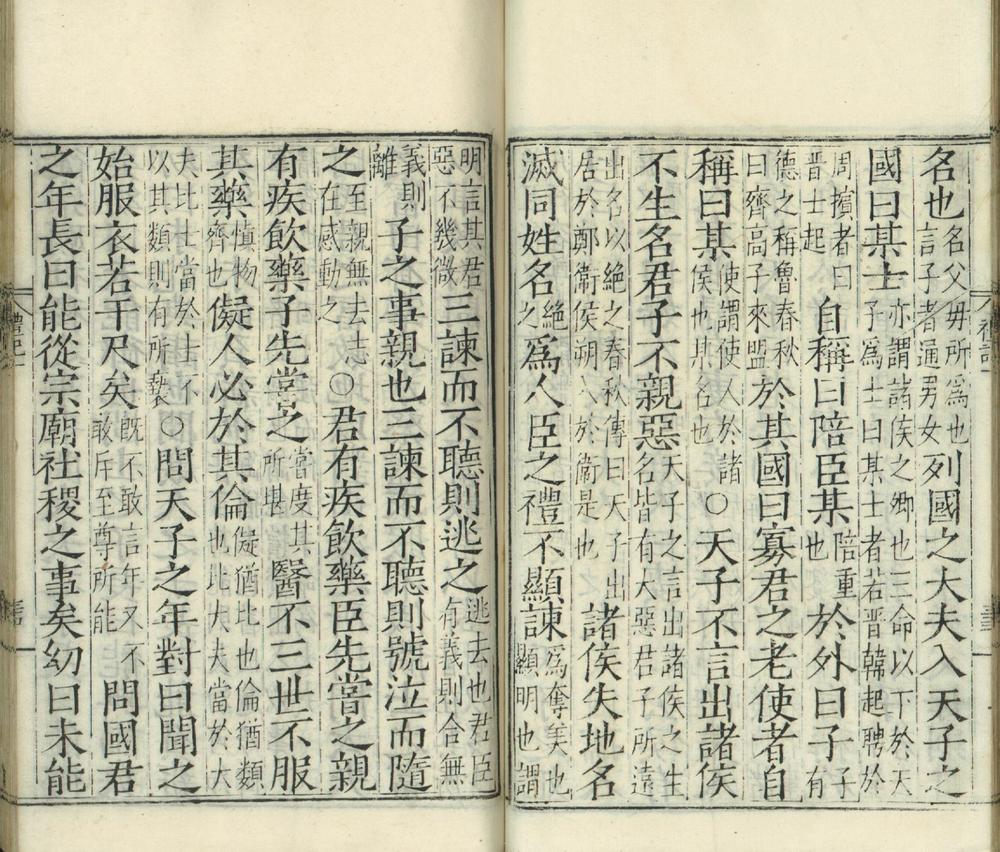 名也名父母所爲也言子者通男女列國之大夫入天子之
國曰某士亦謂諸侯之卿也三命以下於天子爲士曰某士者若晉韓起聘於
周擯者曰晉士起自稱曰陪臣某陪重也於外曰子子有
德之稱魯春秋曰齊高子來盟於其國曰寡君之老使者自
稱曰某使謂使人於諸侯也某名也○天子不言出諸侯
不生名君子不親惡天子之言出諸侯之生名皆有大惡君子所遠
出名以絶之春秋傳曰天子出居於鄭衞侯朔入於衞是也諸侯失地名
滅同姓名絶之爲人臣之禮不顯諫爲奪美也顯明也謂
明言其君惡不幾微三諫而不聽則逃之逃去也君臣有義則合無
義則離子之事親也三諫而不聽則號泣而隨
之至親無去志在感動之○君有疾飲藥臣先嘗之親
有疾飲藥子先嘗之嘗度其所堪醫不三世不服
其藥愼物齊也儗人必於其倫儗猶比也倫猶類也比大夫當於大
夫比士當於士不以其類則有所褻○問天子之年對曰聞之
始服衣若干尺矣旣不敢言年又不敢斥至尊所能問國君
之年長曰能從宗廟社稷之事矣幼曰未能
禮記一